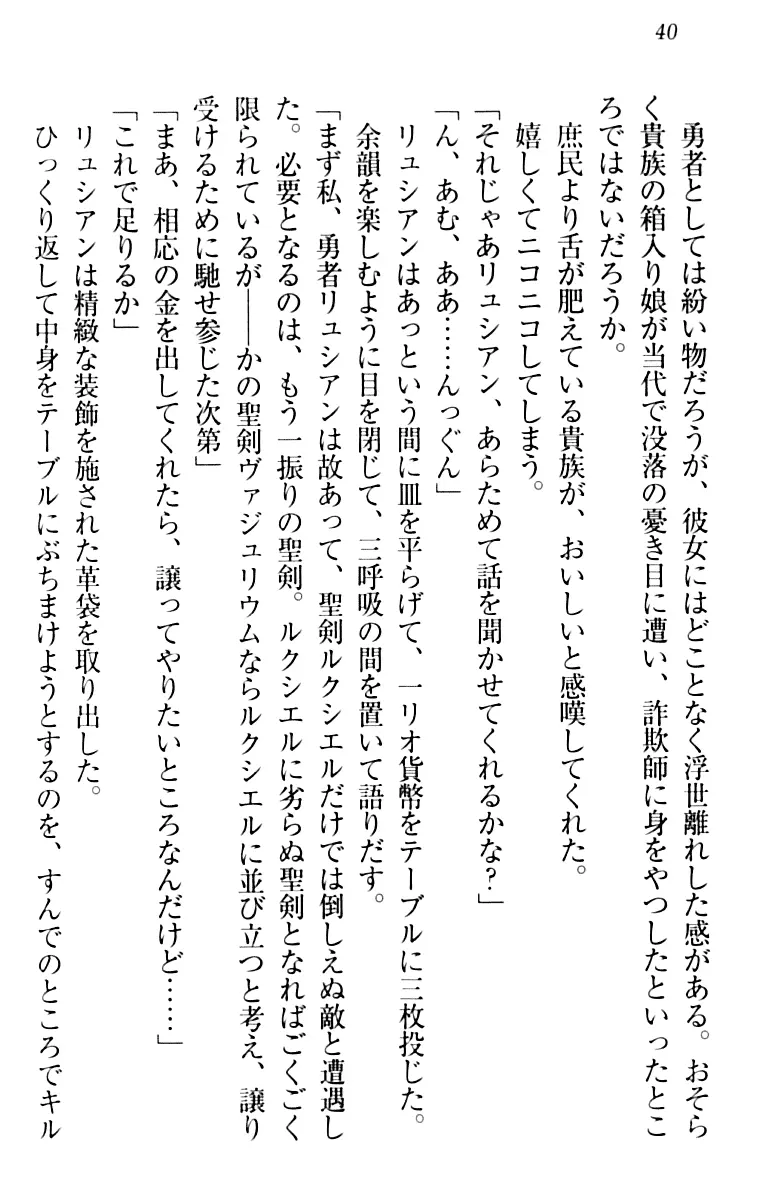 40
　勇者としては紛い物だろうが、彼女にはどことなく浮世離れした感がある。おそら
く貴族の箱入り娘が当代で没落の憂き目に遭い、詐欺師に身をやつしたといったとこ
ろではないだろうか。
　庶民より舌が肥えている貴族が、おいしいと感嘆してくれた。
　嬉しくてニコニコしてしまう。
「それじゃあリュシアン、あらためて話を聞かせてくれるかな？」
「ん、あむ、ああ……んっぐん」
　リュシアンはあっという間に皿を平らげて、一リオ貨幣をテーブルに三枚投じた。
　余韻を楽しむように目を閉じて、三呼吸の間を置いて語りだす。
「まず私、勇者リュシアンは故あって、聖剣ルクシエルだけでは倒しえぬ敵と遭遇し
た。必要となるのは、もう一振りの聖剣。ルクシエルに劣らぬ聖剣となればごくごく
限られているが――かの聖剣ヴァジュリウムならルクシエルに並び立つと考え、譲り
受けるために馳せ参じた次第」
「まあ、相応の金を出してくれたら、譲ってやりたいところなんだけど……」
「これで足りるか」
　リュシアンは精緻な装飾を施された革袋を取り出した。
　ひっくり返して中身をテーブルにぶちまけようとするのを、すんでのところでキル